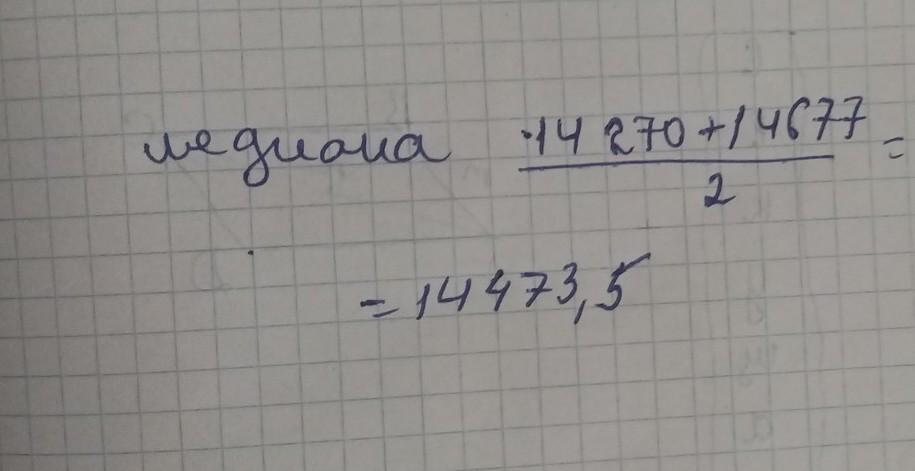 медиана (14 270 + 14677) / 2 =
= 14473,5